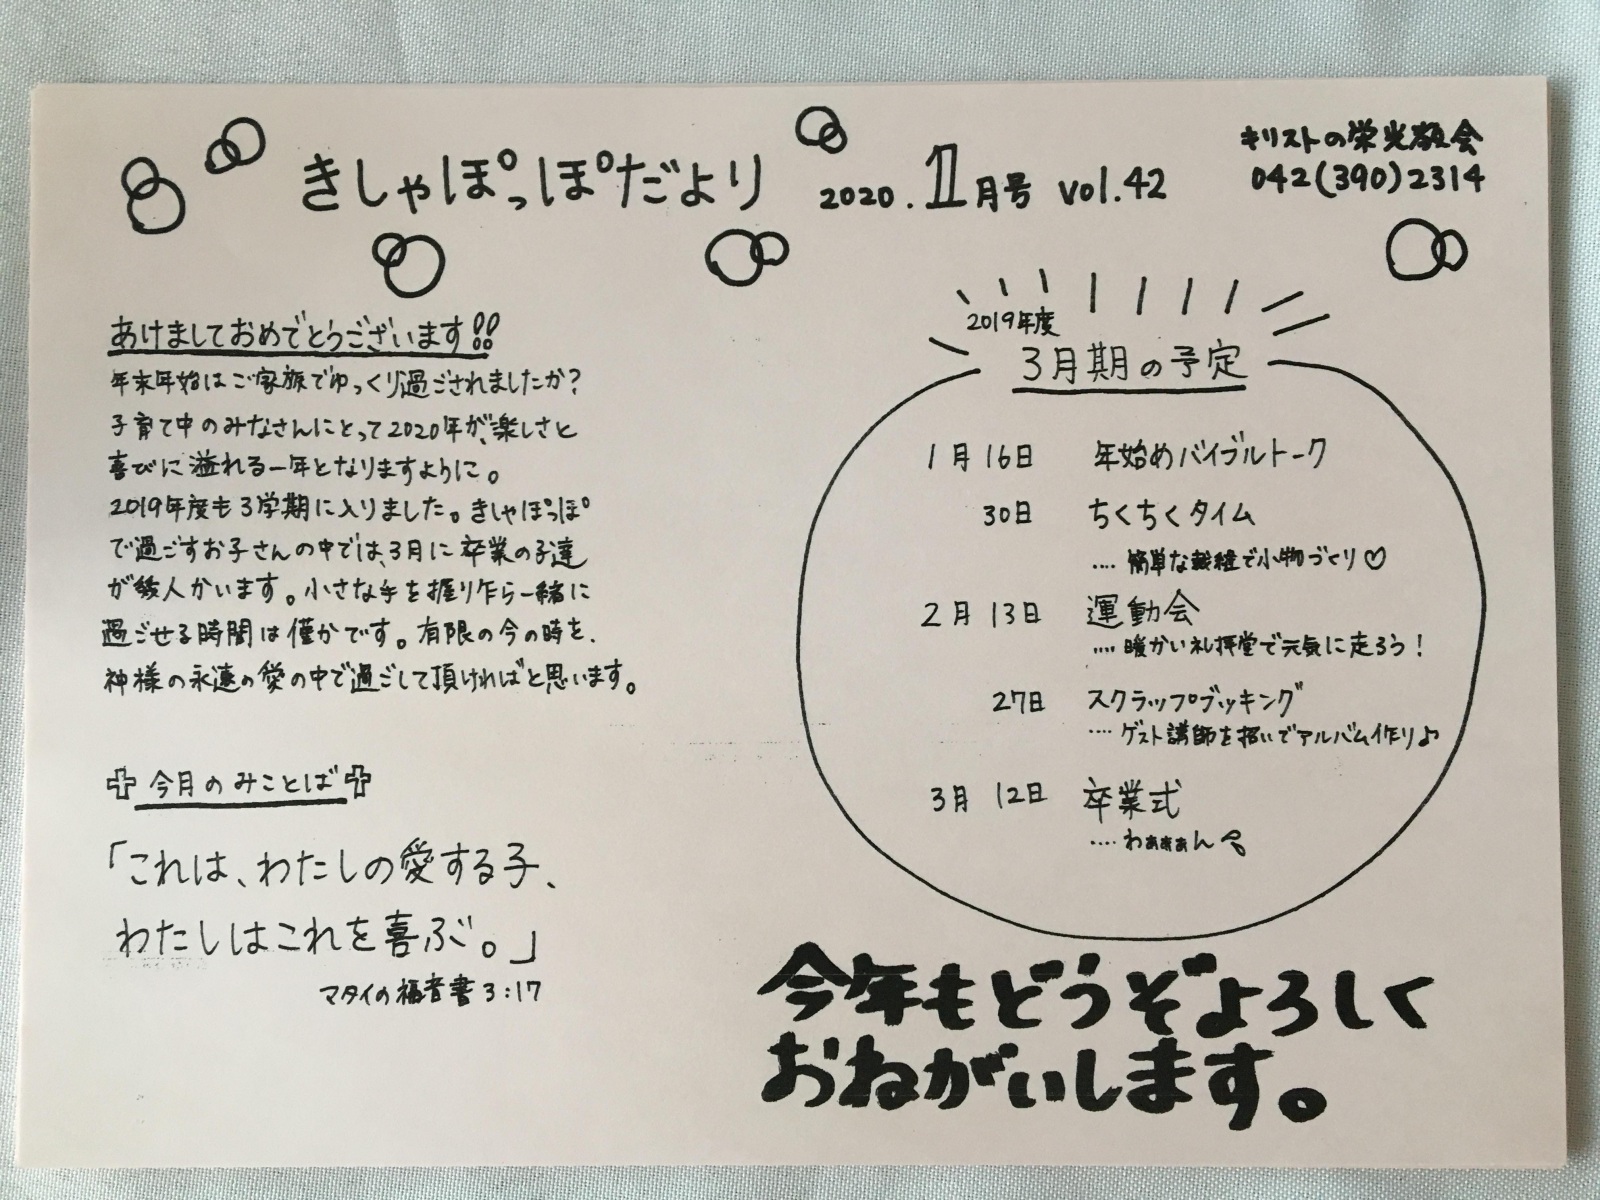 きしゃぽっぽだより
2020.1月号 vol.42
キリストの栄光教会
042(390)2314
あけましておめでとうございます!!
年末年始はご家族でゆっくり過ごされましたか?
子育て中のみなさんにとって2020年が、楽しさと
喜びに溢れる一年となりますように。
2019年度も3学期に入りました。きしゃぽっぽ
で過ごすお子さんの中では、3月に卒業の子達
が幾人かいます。小さな手を握り乍ら一緒に
過ごせる時間は僅かです。有限の今の時を、
神様の永遠の愛の中で過ごして頂ければと思います。
今月のみことば
「これは、わたしの愛する子、
わたしはこれを喜ぶ。」
マタイの福音書3:17
2019年度
3月期の予定
1月 16日 年始めバイブルトーク
30日 ちくちくタイム
.... 簡単な裁縫で小物づくり♡
2月 13日 運動会
.... 暖かい礼拝堂で元気に走ろう!
27日 スクラップブッキング
.... ゲスト講師を招いてアルバム作り♪
3月 12日 卒業式
.... わぁぁぁん
今年もどうぞよろしく
おねがいします。